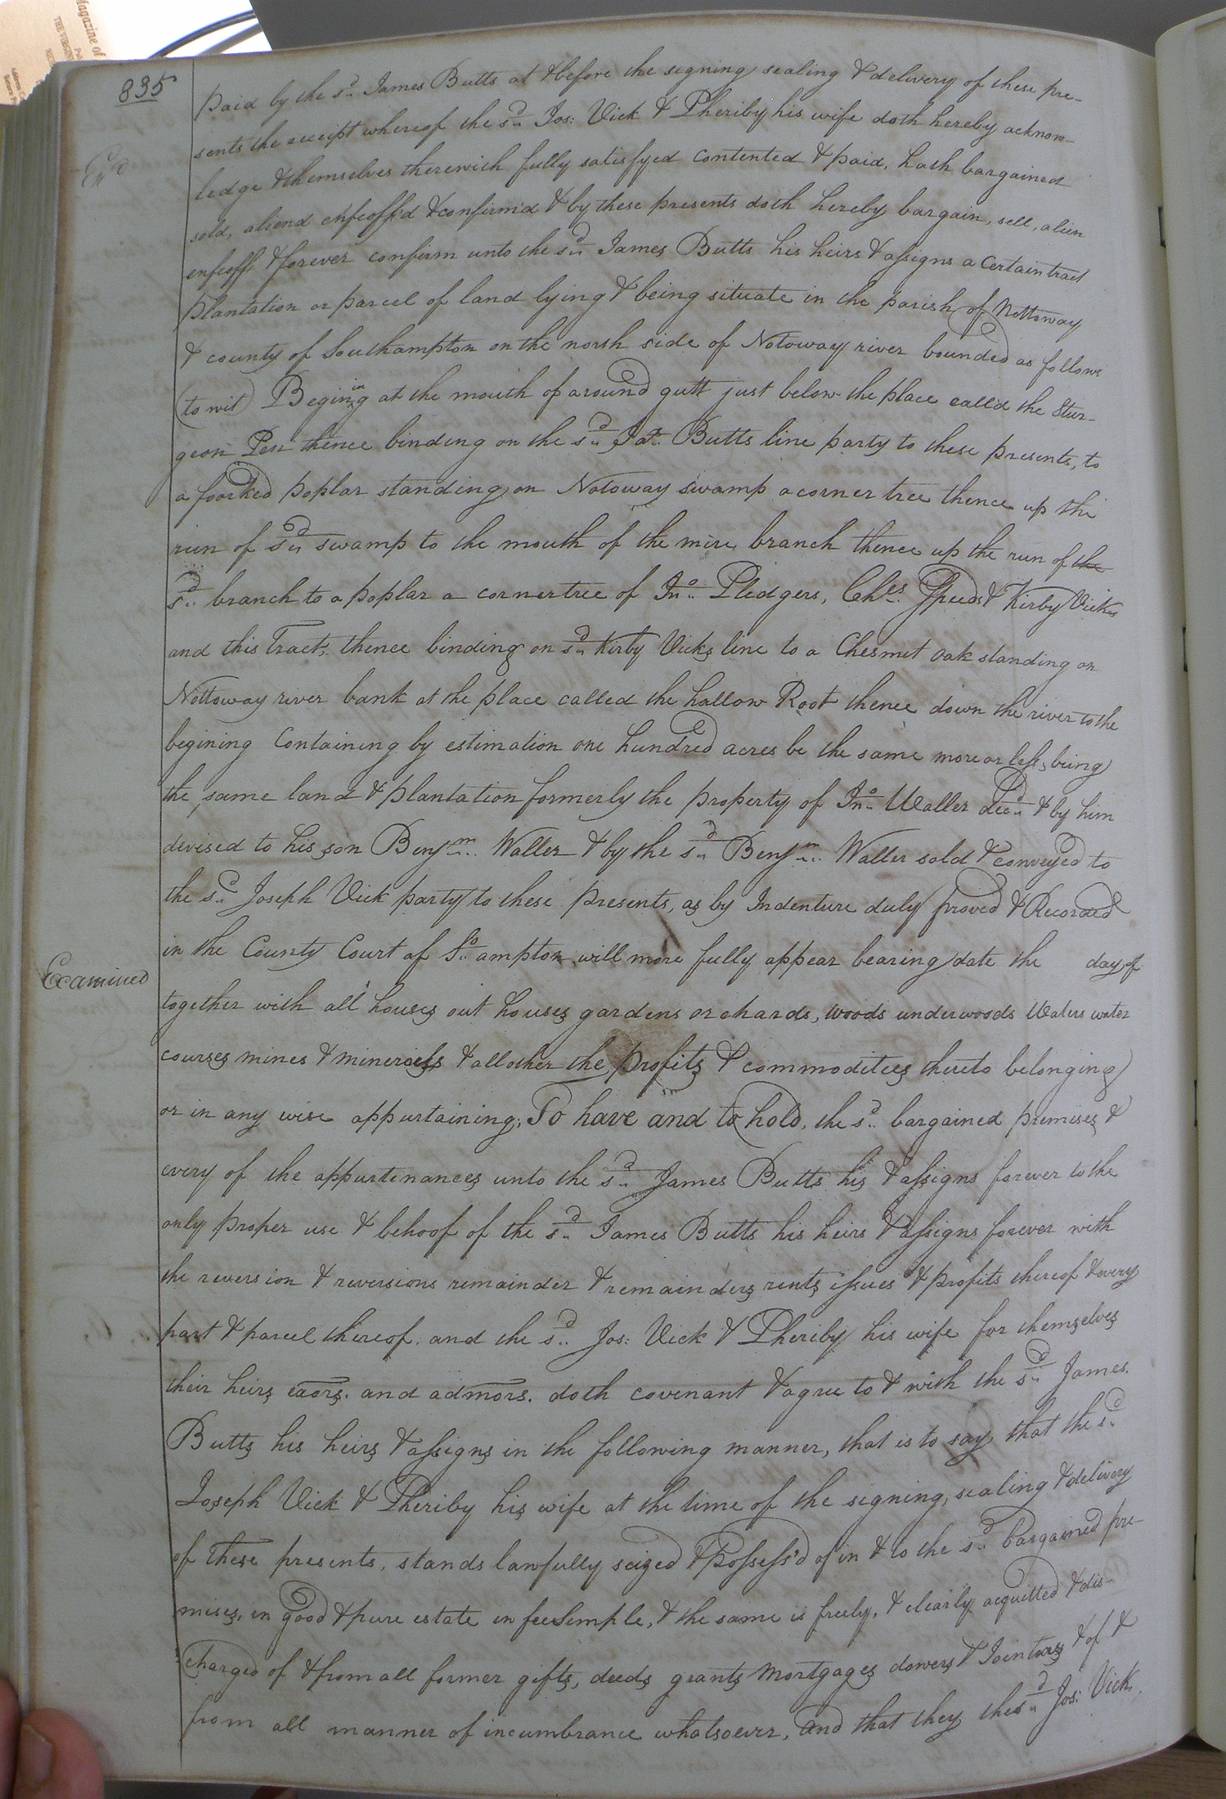 Magazine of
THE VIRGIN
835
Exd
paid by the sd. James Butts at & before the signing sealing & delivery of these pre-
sents the receipt whereof the sd. Jos: Vick & Pheriby his wife doth hereby acknow-
ledge & themselves therewith fully satisfyed contented & paid, hath bargained
sold, aliend enfeoff'd & confirm'd & by these presents doth hereby bargain, sell, alien
enfeoff & forever confirm unto the sd. James Butts his heirs & assigns a certain tract
plantation or parcel of land lying & being situate in the parish of Nottoway
& county of Southampton on the north side of Notoway river bounded as follows
(to wit) Begining at the mouth of a round gutt just below the place called the Stur-
geon Pen thence binding on the sd. Jas. Butts line party to these presents, to
a foorked poplar standing on Notoway swamp a corner tree thence up the
run of sd. swamp to the mouth of the mire branch thence up the run of the
sd. branch to a poplar a corner tree of Jno. Pledgers, Chs. Speeds & Kirby Vicks
and this Tract, thence binding on sd. Kirby Vicks line to a Chesnut oak standing on
Nottoway river bank at the place called the hallow Root thence down the river to the
begining Containing by estimation one hundred acres be the same more or less, being
the same land & plantation formerly the property of Jno. Waller decd. & by him
devised to his son Benjm. Waller & by the sd. Benjm. Waller sold & conveyed to
the sd. Joseph Vick party to these presents, as by Indenture duly proved & Recorded
in the County Court of So.ampton will more fully appear bearing date the day of
Examined
together with all houses out houses gardens orchards, woods underwoods Waters water
courses mines & minerals & all other the profits & commodities thereto belonging
or in any wise appurtaining, To have and to hold, the sd. bargained premises &
every of the appurtenances unto the sd. James Butts his & assigns forever to the
only proper use & behoof of the sd. James Butts his heirs & assigns forever with
the reversion & reversions remainder & remainders rents issues & profits thereof & every
part & parcel thereof. and the sd. Jos: Vick & Pheriby his wife for themselves
their heirs exors. and admors. doth covenant & agree to & with the sd. James
Butts his heirs & assigns in the following manner, that is to say that the sd.
Joseph Vick & Pheriby his wife at the time of the signing, sealing & delivery
of these presents, stands lawfully seized & possess'd of in & to the sd. bargained pre-
mises, in good & pure estate in fee Simple, & the same is freely, & clearly acquitted & dis-
charged of & from all former gifts, deeds grants Mortgages dowers & Jointures & of &
from all manner of incumbrance whatsoever, and that they the sd. Jos: Vick